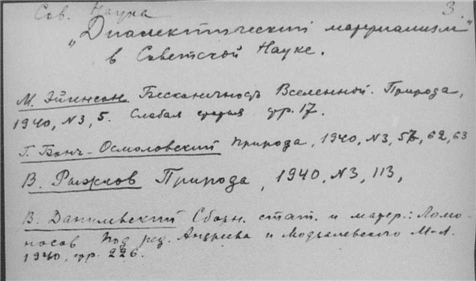 Сов. Наука 3.
"Диалектический материализм"
в Советской Науке.
М. Эйгенсон Бесконечность Вселенной. Природа,
1940, N3, 5. Слабая стр. 17.
Г. Бонч-Осмоловский Природа, 1940, N3, 57, 62, 63
В. Рыжков Природа, 1940, N3, 113,
В. Данилевский Сборн. стат. и матер.: Ломо-
носов под ред. Андреева и Модзалевского М-Л.
1940, стр. 226.